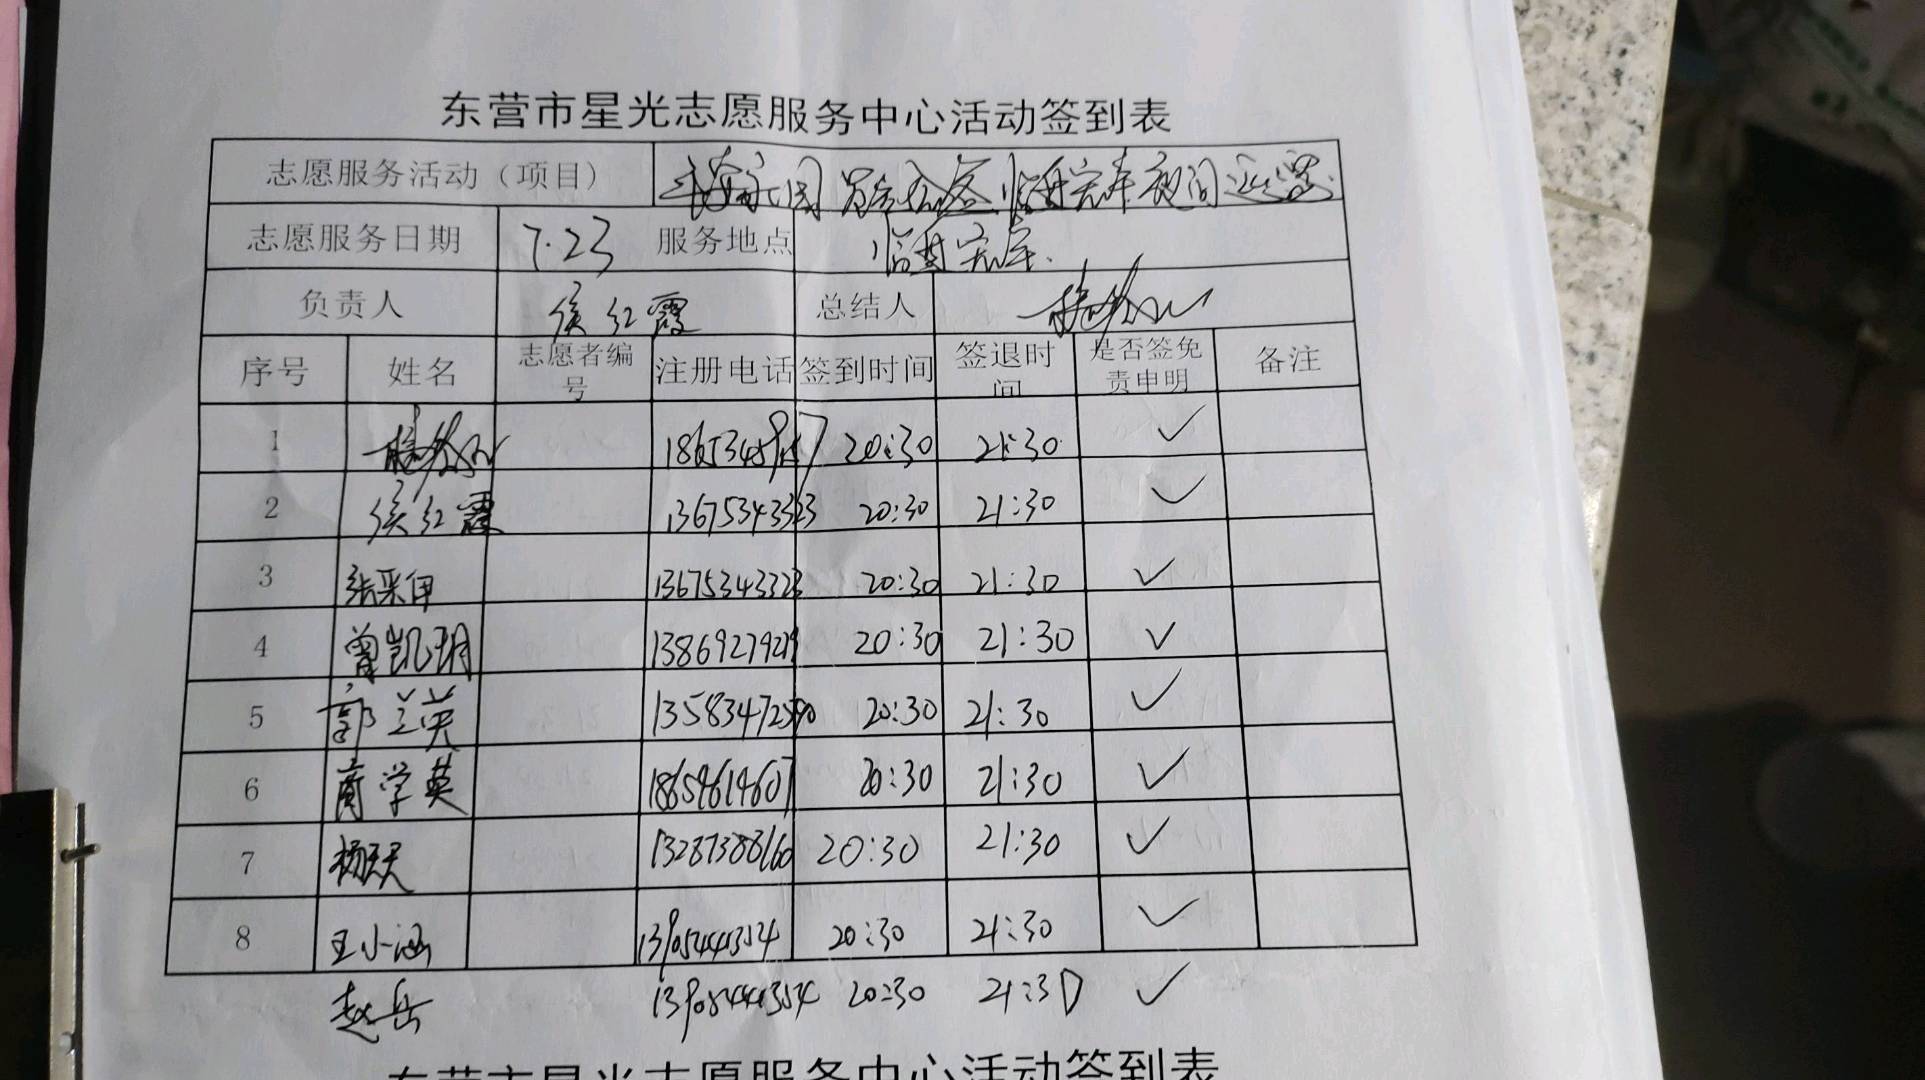 东营市星光志愿服务中心活动签到表
志愿服务活动（项目） 夜间巡逻
志愿服务日期 7.23 服务地点
负责人 侯红霞 总结人
序号 姓名 志愿者编号 注册电话 签到时间 签退时间 是否签免责申明 备注
1 20:30 21:30 ✓
2 侯红霞 13675343323 20:30 21:30 ✓
3 张采伊 13675343323 20:30 21:30 ✓
4 曾凯玥 13869279219 20:30 21:30 ✓
5 郭兰英 20:30 21:30 ✓
6 商学英 18654614607 20:30 21:30 ✓
7 杨天天 13287388160 20:30 21:30 ✓
8 王小涵 13905444354 20:30 21:30 ✓
赵岳 13905444354 20:30 21:30 ✓
东营市星光志愿服务中心活动签到表